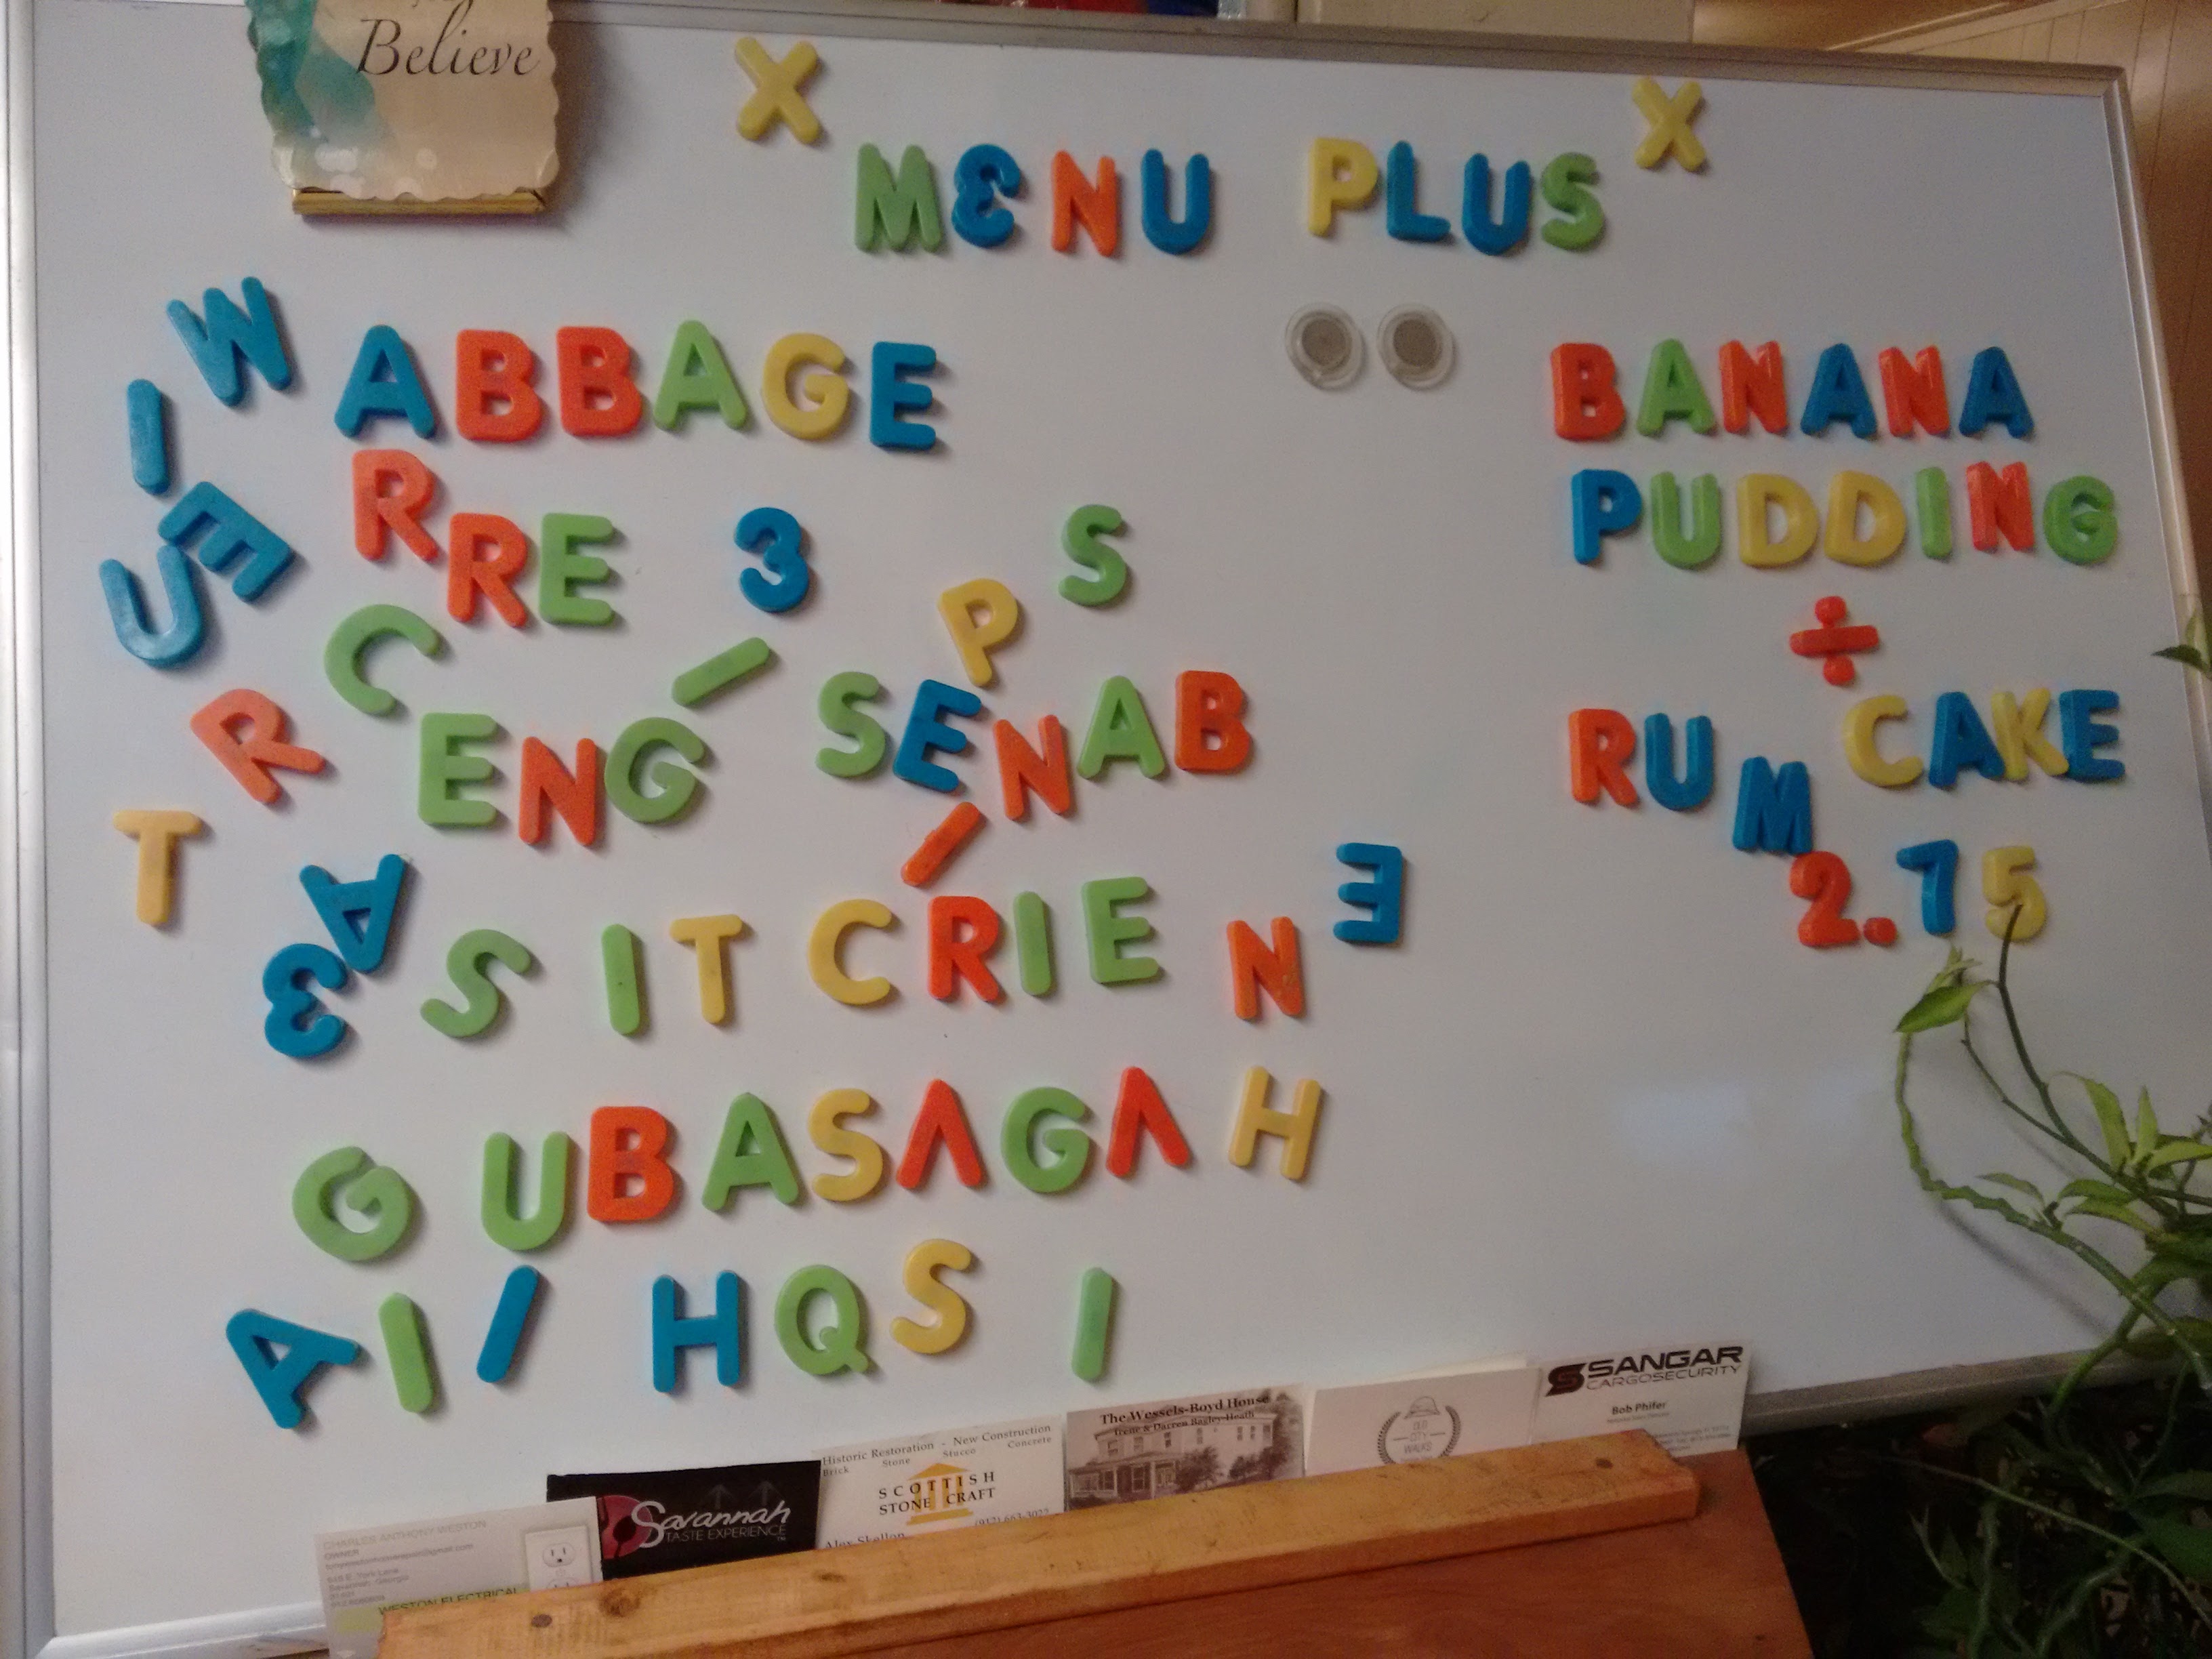 Believe
X X
MENU PLUS
W ABBAGE
I
R
E RRE 3 S
U
C I P
R ENG SENAB
T I
A E
3 S IT CRIE N
G UBASΛGΛH
AI I HQS I
BANANA
PUDDING
÷
RUM CAKE
2.75
CHARLES ANTHONY WESTON
OWNER
WESTON ELECTRICAL
Savannah
TASTE EXPERIENCE
Historic Restoration - New Construction
Brick Stone Stucco Concrete
SCOTTISH
STONE CRAFT
Alex Skellon (912) 663-3022
The Wessels-Boyd House
Irene & Darren Bagley-Heath
OLD
CITY
WALKS
SANGAR
CARGOSECURITY
Bob Phifer